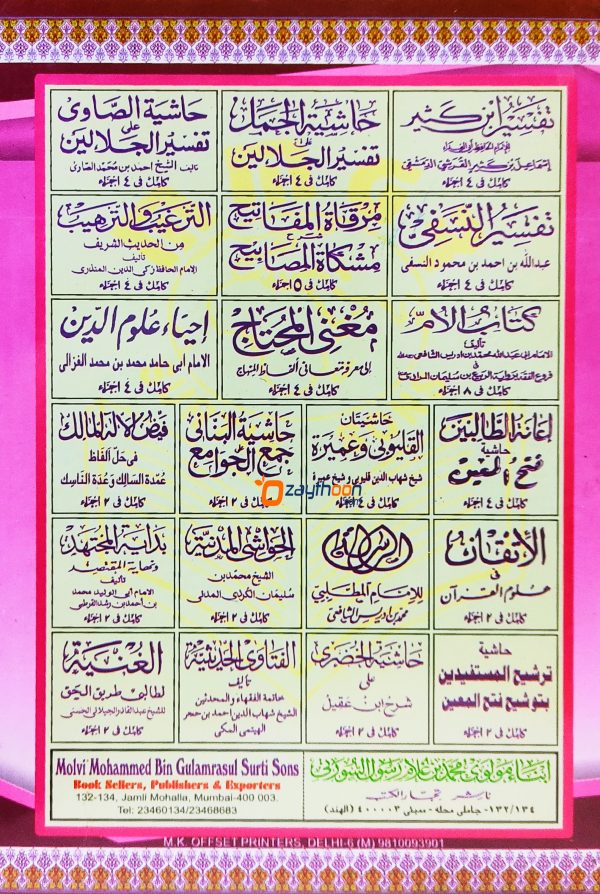 تفسير ابن كثير
للإمام الحافظ أبي الفداء
إسماعيل بن كثير القرشي الدمشقي
كامل في ٤ اجزاء
حاشية الجمل
على
تفسير الجلالين
كامل في ٤ اجزاء
حاشية الصاوى
على
تفسير الجلالين
تاليف الشيخ احمد بن محمد الصاوى
كامل في ٤ اجزاء
تفسير النسفي
عبدالله بن احمد بن محمود النسفى
كامل في ٤ اجزاء
مرقاة المفاتيح
شرح
مشكاة المصابيح
كامل في ٥ اجزاء
الترغيب والترهيب
من الحديث الشريف
تأليف
الامام الحافظ زكى الدين المنذرى
كامل في ٤ اجزاء
كتاب الأم
تأليف
الامام ابى عبدالله محمد بن ادريس الشافعى
كامل في ٨ اجزاء
مغني المحتاج
إلى معرفة معاني ألفاظ المنهاج
كامل في ٤ اجزاء
إحياء علوم الدين
الامام ابى حامد محمد بن محمد الغزالى
كامل في ٤ اجزاء
إعانة الطالبين
حاشية
فتح المعين
كامل في ٤ اجزاء
حاشيتان
القليوبي وعميرة
شيخ شهاب الدين قليوبى وشيخ عميرة
كامل في ٤ اجزاء
حاشية البناني
جمع الجوامع
كامل في ٢ اجزاء
فيض الاله المالك
في حل ألفاظ
عمدة السالك وعدة الناسك
كامل في ٢ اجزاء
ozaythoon
الإتقان
في
علوم القرآن
كامل في ٢ اجزاء
الرسالة
للإمام المطلبي
محمد بن ادريس الشافعي
الحواشي المدنية
الشيخ محمد بن
سليمان الكردى المدنى
كامل في ٢ اجزاء
بداية المجتهد
ونهاية المقتصد
تأليف
الامام ابى الوليد محمد
بن احمد بن رشد القرطبى
كامل في ٢ اجزاء
حاشية
ترشيح المستفيدين
بتوشيح فتح المعين
كامل في ٢ اجزاء
حاشية الخضرى
على
شرح ابن عقيل
كامل في ٢ اجزاء
الفتاوى الحديثية
تأليف
خاتمة الفقهاء والمحدثين
الشيخ شهاب الدين احمد بن حجر
الهيتمى المكى
الغنية
لطالبي طريق الحق
للشيخ عبدالقادر الجيلانى الحسنى
كامل في ٢ اجزاء
Molvi Mohammed Bin Gulamrasul Surti Sons
Book Sellers, Publishers & Exporters
132-134, Jamli Mohalla, Mumbai-400 003.
Tel: 23460134/23468683
ابناء مولوى محمد بن غلام رسول السورتى
ناشر تجار الكتب
١٣٢/١٣٤- جاملى محله - ممبئى ٤٠٠٠٠٣ (الهند)
M.K. OFFSET PRINTERS, DELHI-6 (M) 9810093901